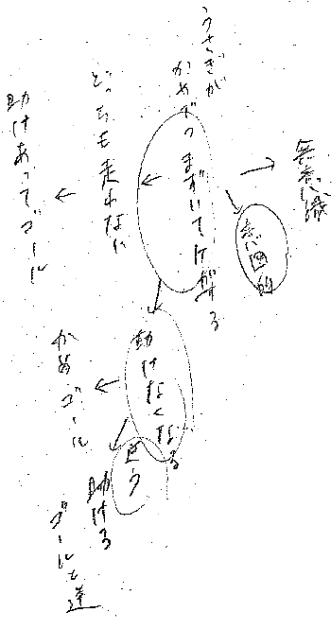 無意識
意図的
うさぎが
かめがつまずいてけがする
どっちも走れない
助けあってゴール
動けなくなる
かめゴール
助ける